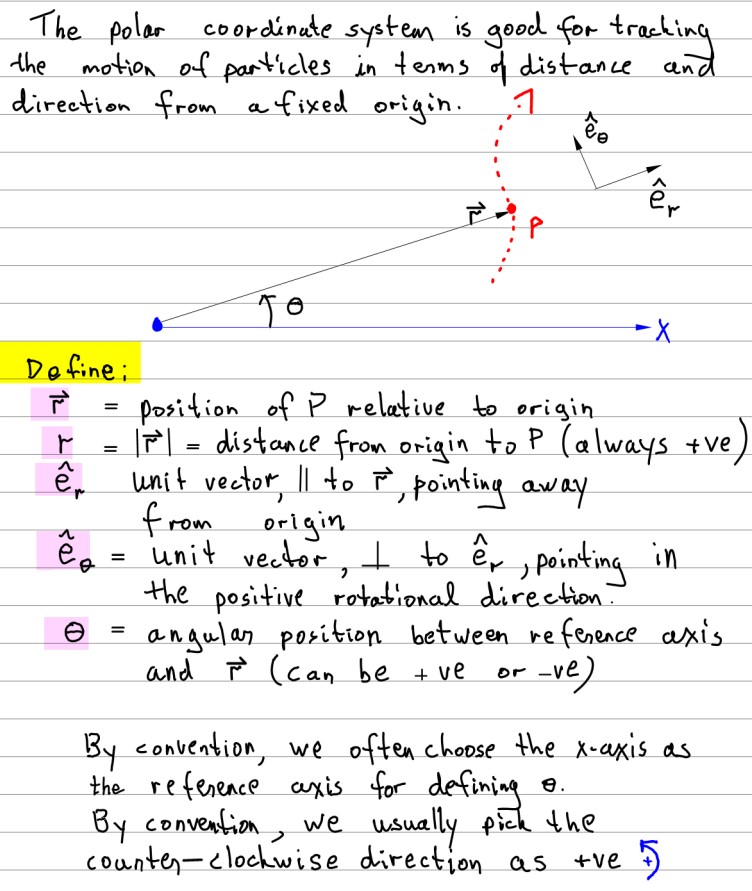 The polar coordinate system is good for tracking
the motion of particles in terms of distance and
direction from a fixed origin.
ê_θ
ê_r
r⃗
P
θ
x
Define:
r⃗ = position of P relative to origin
r = |r⃗| = distance from origin to P (always +ve)
ê_r unit vector, || to r⃗, pointing away
from origin
ê_θ = unit vector, ⊥ to ê_r, pointing in
the positive rotational direction.
θ = angular position between reference axis
and r⃗ (can be +ve or -ve)
By convention, we often choose the x-axis as
the reference axis for defining θ.
By convention, we usually pick the
counter-clockwise direction as +ve +